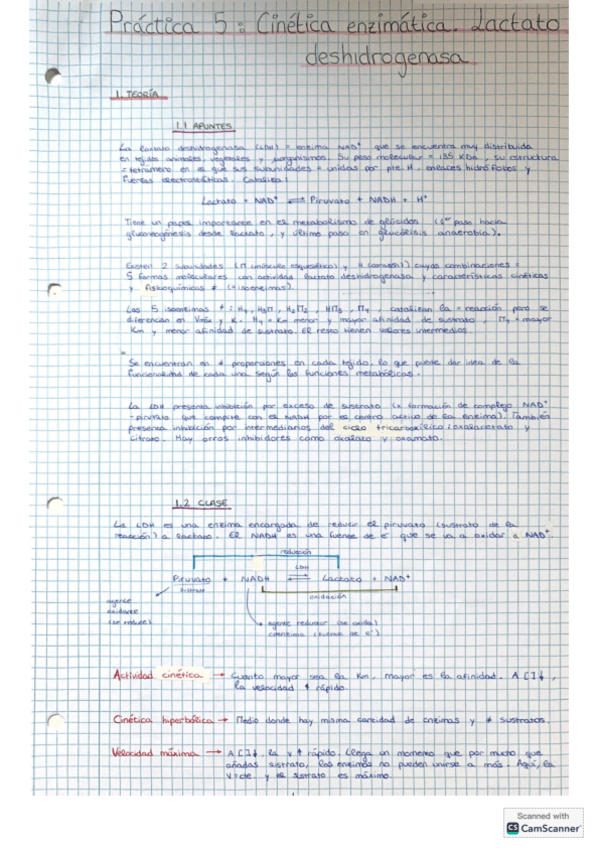 Práctica 5: Cinética enzimática. Lactato
deshidrogenasa
1. TEORÍA
1.1 APUNTES
La lactato deshidrogenasa (LDH) = enzima NAD⁺ que se encuentra muy distribuida
en tejidos animales, vegetales y µorganismos. Su peso molecular = 135 KDa, su estructura
= tetrámero en el que sus subunidades = unidas por pte. H, enlaces hidrófobos y
fuerzas electrostáticas. Cataliza:
Lactato + NAD⁺ ⇌ Piruvato + NADH + H⁺
Tiene un papel importante en el metabolismo de glúcidos (1er paso hacia
gluconeogénesis desde lactato, y último paso en glucólisis anaerobia).
Existen 2 subunidades (M (músculo esquelético) y H (corazón)) cuyas combinaciones =
5 formas moleculares con actividad lactato deshidrogenasa y características cinéticas
y fisicoquímicas ≠ (= isoenzimas).
Las 5 isoenzimas ≠: H₄, H₃M, H₂M₂, HM₃, M₄. Catalizan la = reacción pero se
diferencian en Vmáx y K. H₄ = Km menor y mayor afinidad de sustrato, M₄ = mayor
Km y menor afinidad de sustrato. El resto tienen valores intermedios.
Se encuentran en ≠ proporciones en cada tejido, lo que puede dar idea de la
funcionalidad de cada una según las funciones metabólicas.
La LDH presenta inhibición por exceso de sustrato (x formación de complejo NAD⁺
-piruvato que compite con el NADH por el centro activo de la enzima). También
presenta inhibición por intermediarios del ciclo tricarboxílico: oxalacetato y
citrato. Hay otros inhibidores como oxalato y oxamato.
1.2 CLASE
La LDH es una enzima encargada de reducir el piruvato (sustrato de la
reacción) a lactato. El NADH es una fuente de e⁻ que se va a oxidar a NAD⁺.
reducción
LDH
Piruvato + NADH ⇌ Lactato + NAD⁺
sustrato
oxidación
agente
oxidante
(se reduce)
agente reductor (se oxida)
coenzima (fuente de e⁻)
Actividad cinética → Cuanto mayor sea la Km, mayor es la afinidad. A [ ]↓,
la velocidad ↑ rápido.
Cinética hiperbólica → Medio donde hay misma cantidad de enzimas y ≠ sustratos.
Velocidad máxima → A [ ]↓, la v ↑ rápido. Llega un momento que por mucho que
añadas sustrato, las enzimas no pueden unirse a más. Aquí, la
v = cte. y el sustrato es máximo.
Scanned with
CS CamScanner